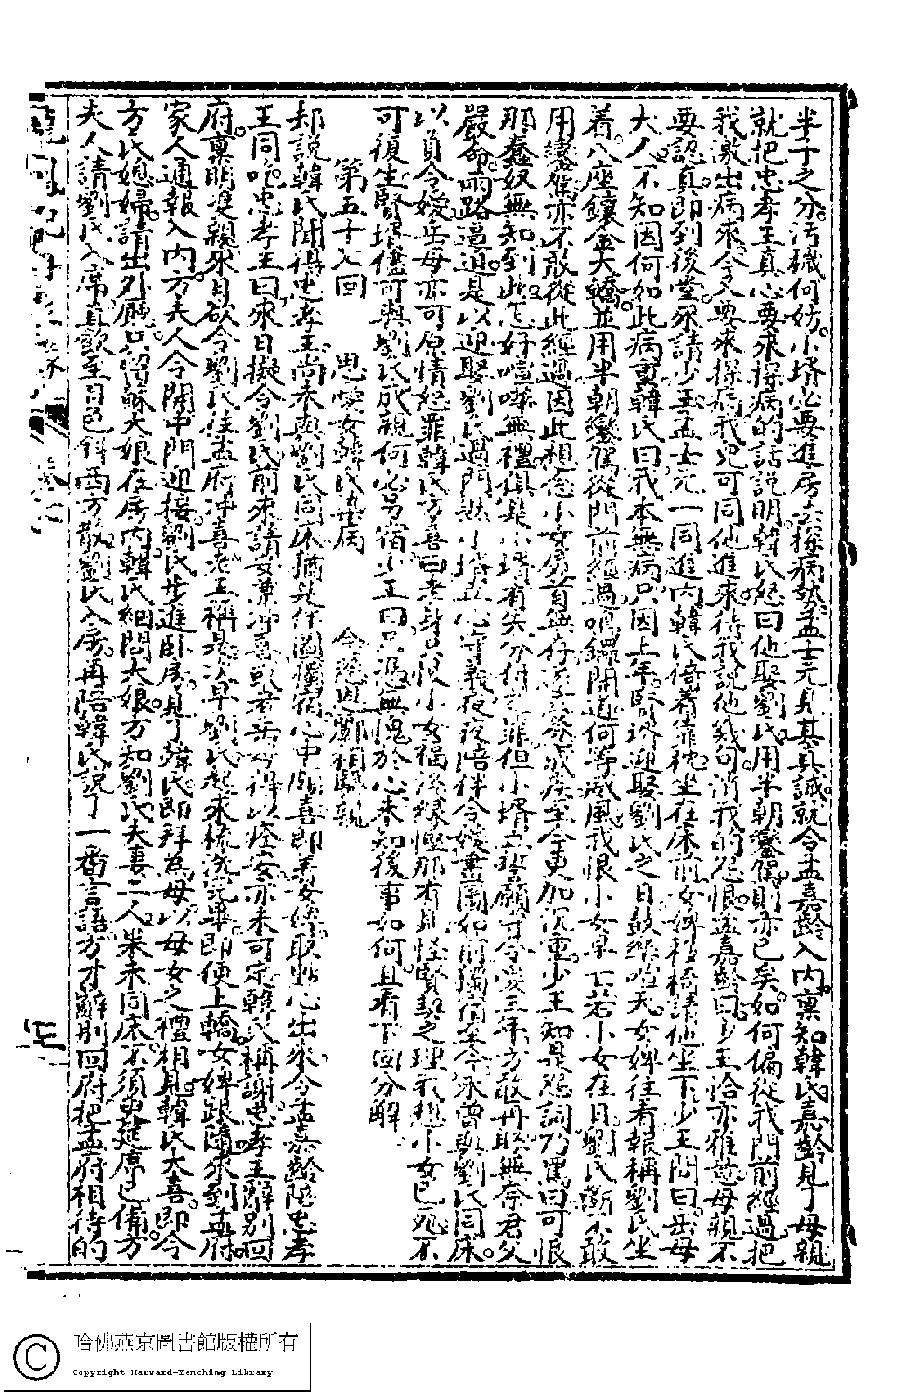 半子之分。汚穢何妨。小壻必要進房去探病。孟士元見其真誠。就令孟嘉齡入內。稟知韓氏。嘉齡見了母親
就把忠孝王真心要來探病的話說明。韓氏怒曰他娶劉氏。用半朝鑾駕。則亦已矣。如何偏從我門前經過。把
我激出病來。今又要來探病。我兒可同他進來。待我說他幾句。消我的怨恨。孟嘉齡曰。少王恰亦雅意。母親不
要認真。即到後堂來請少王。孟士元一同進內。韓氏倚着靠枕。坐在床前。女婢移椅請他坐下。少王問曰。岳母
大人。不知因何如此病重。韓氏曰。我本無病。只因上年賢壻迎娶劉氏之日。鼓樂喧天。女婢往看。報稱劉氏坐
着八座鑲金大轎。並用半朝鑾駕。從門前經過。鳴鑼開道。何等威風。我恨小女早亡。若小女在日。劉氏斷不敢
用鑾駕。亦不敢從此經過。因此想念小女 成疾。至今更加沉重。少王知是怨詞。乃罵曰。可恨
那蠢奴無知。到此怎好喧嘩無禮。俱是小壻有失分付之罪。但小壻立誓。願守令愛三年。方敢再娶。無奈君父
嚴命。兩路逼迫。是以迎娶劉氏過門。然小壻立心守義。夜夜陪伴令嫒畫圖如前獨宿。至今未曾與劉氏同床。
以負令嫒。岳母亦可原情恕罪。韓氏方喜曰。老身只恨小女福淺緣慳。那有見怪賢契之理。我想小女已死不
可復生。賢壻儘可與劉氏成親。何必另宿。少王曰。只憑無愧於心。未知後事如何。且看下回分解
第五十八回 思愛女韓氏染病 　
却說韓氏聞得忠孝王尚未與劉氏同床。猶是伴圖獨宿。心中暗喜。即 取點心出來。令孟嘉齡陪忠孝
王同吃。忠孝王曰。來日擬令劉氏前來請安兼冲喜。或者岳母得以痊安。亦未可定。韓氏稱謝。忠孝王辭別回
府。稟明雙親。來日欲令劉氏往孟府冲喜。老王稱是。次早劉氏起來。梳洗完畢。即便上轎。女婢跟隨。來到孟府
家人通報入內。方夫人令開中門迎接。劉氏步進臥房。見了韓氏。即拜為母。以母女之禮相見。韓氏大喜。即令
方氏媳婦。請出外廳。只留蘇大娘在房內。韓氏細問大娘。方知劉氏夫妻二人果未同床。不須 延席已備。方
夫人請劉氏入席。直飲至日已斜西方散。劉氏入房。再陪韓氏說了一番言語。方才辭別回府。把孟府相待的
哈佛燕京圖書館版權所有
Copyright Harvard-Yenching Library